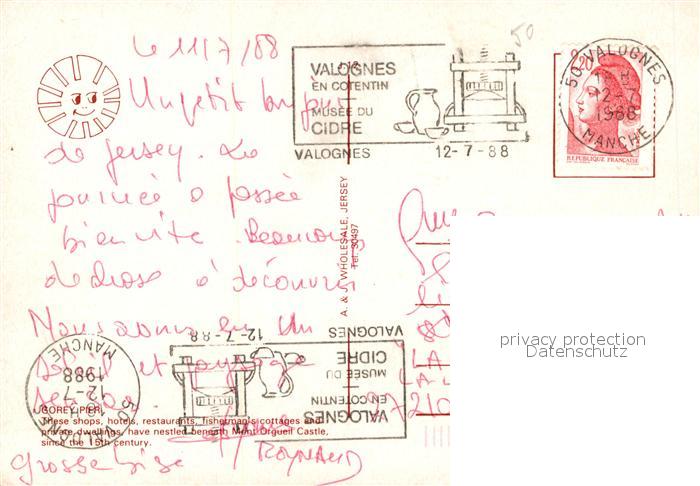 50
le 11/7/88
VALOGNES
EN COTENTIN
MUSÉE DU
CIDRE
VALOGNES
12-7-88
50 VALOGNES
12-7
1988
MANCHE
2,20
REPUBLIQUE FRANÇAISE
Un petit bonjour
de Jersey. La
journée a passée
bien vite. Beaucoup
de chose à découvrir
Nous avons eu un
soleil et paysage
A. & J. WHOLESALE, JERSEY
Tel. 30497
12-7-88
VALOGNES
CIDRE
MUSÉE DU
EN COTENTIN
VALOGNES
MANCHE
1988
12-7
50
LA
7210
privacy protection
Datenschutz
GOREY PIER
These shops, hotels, restaurants, fisherman's cottages and
private dwellings, have nestled beneath Mont Orgueil Castle,
since the 15th century.
grosse bise
RAYNAUD